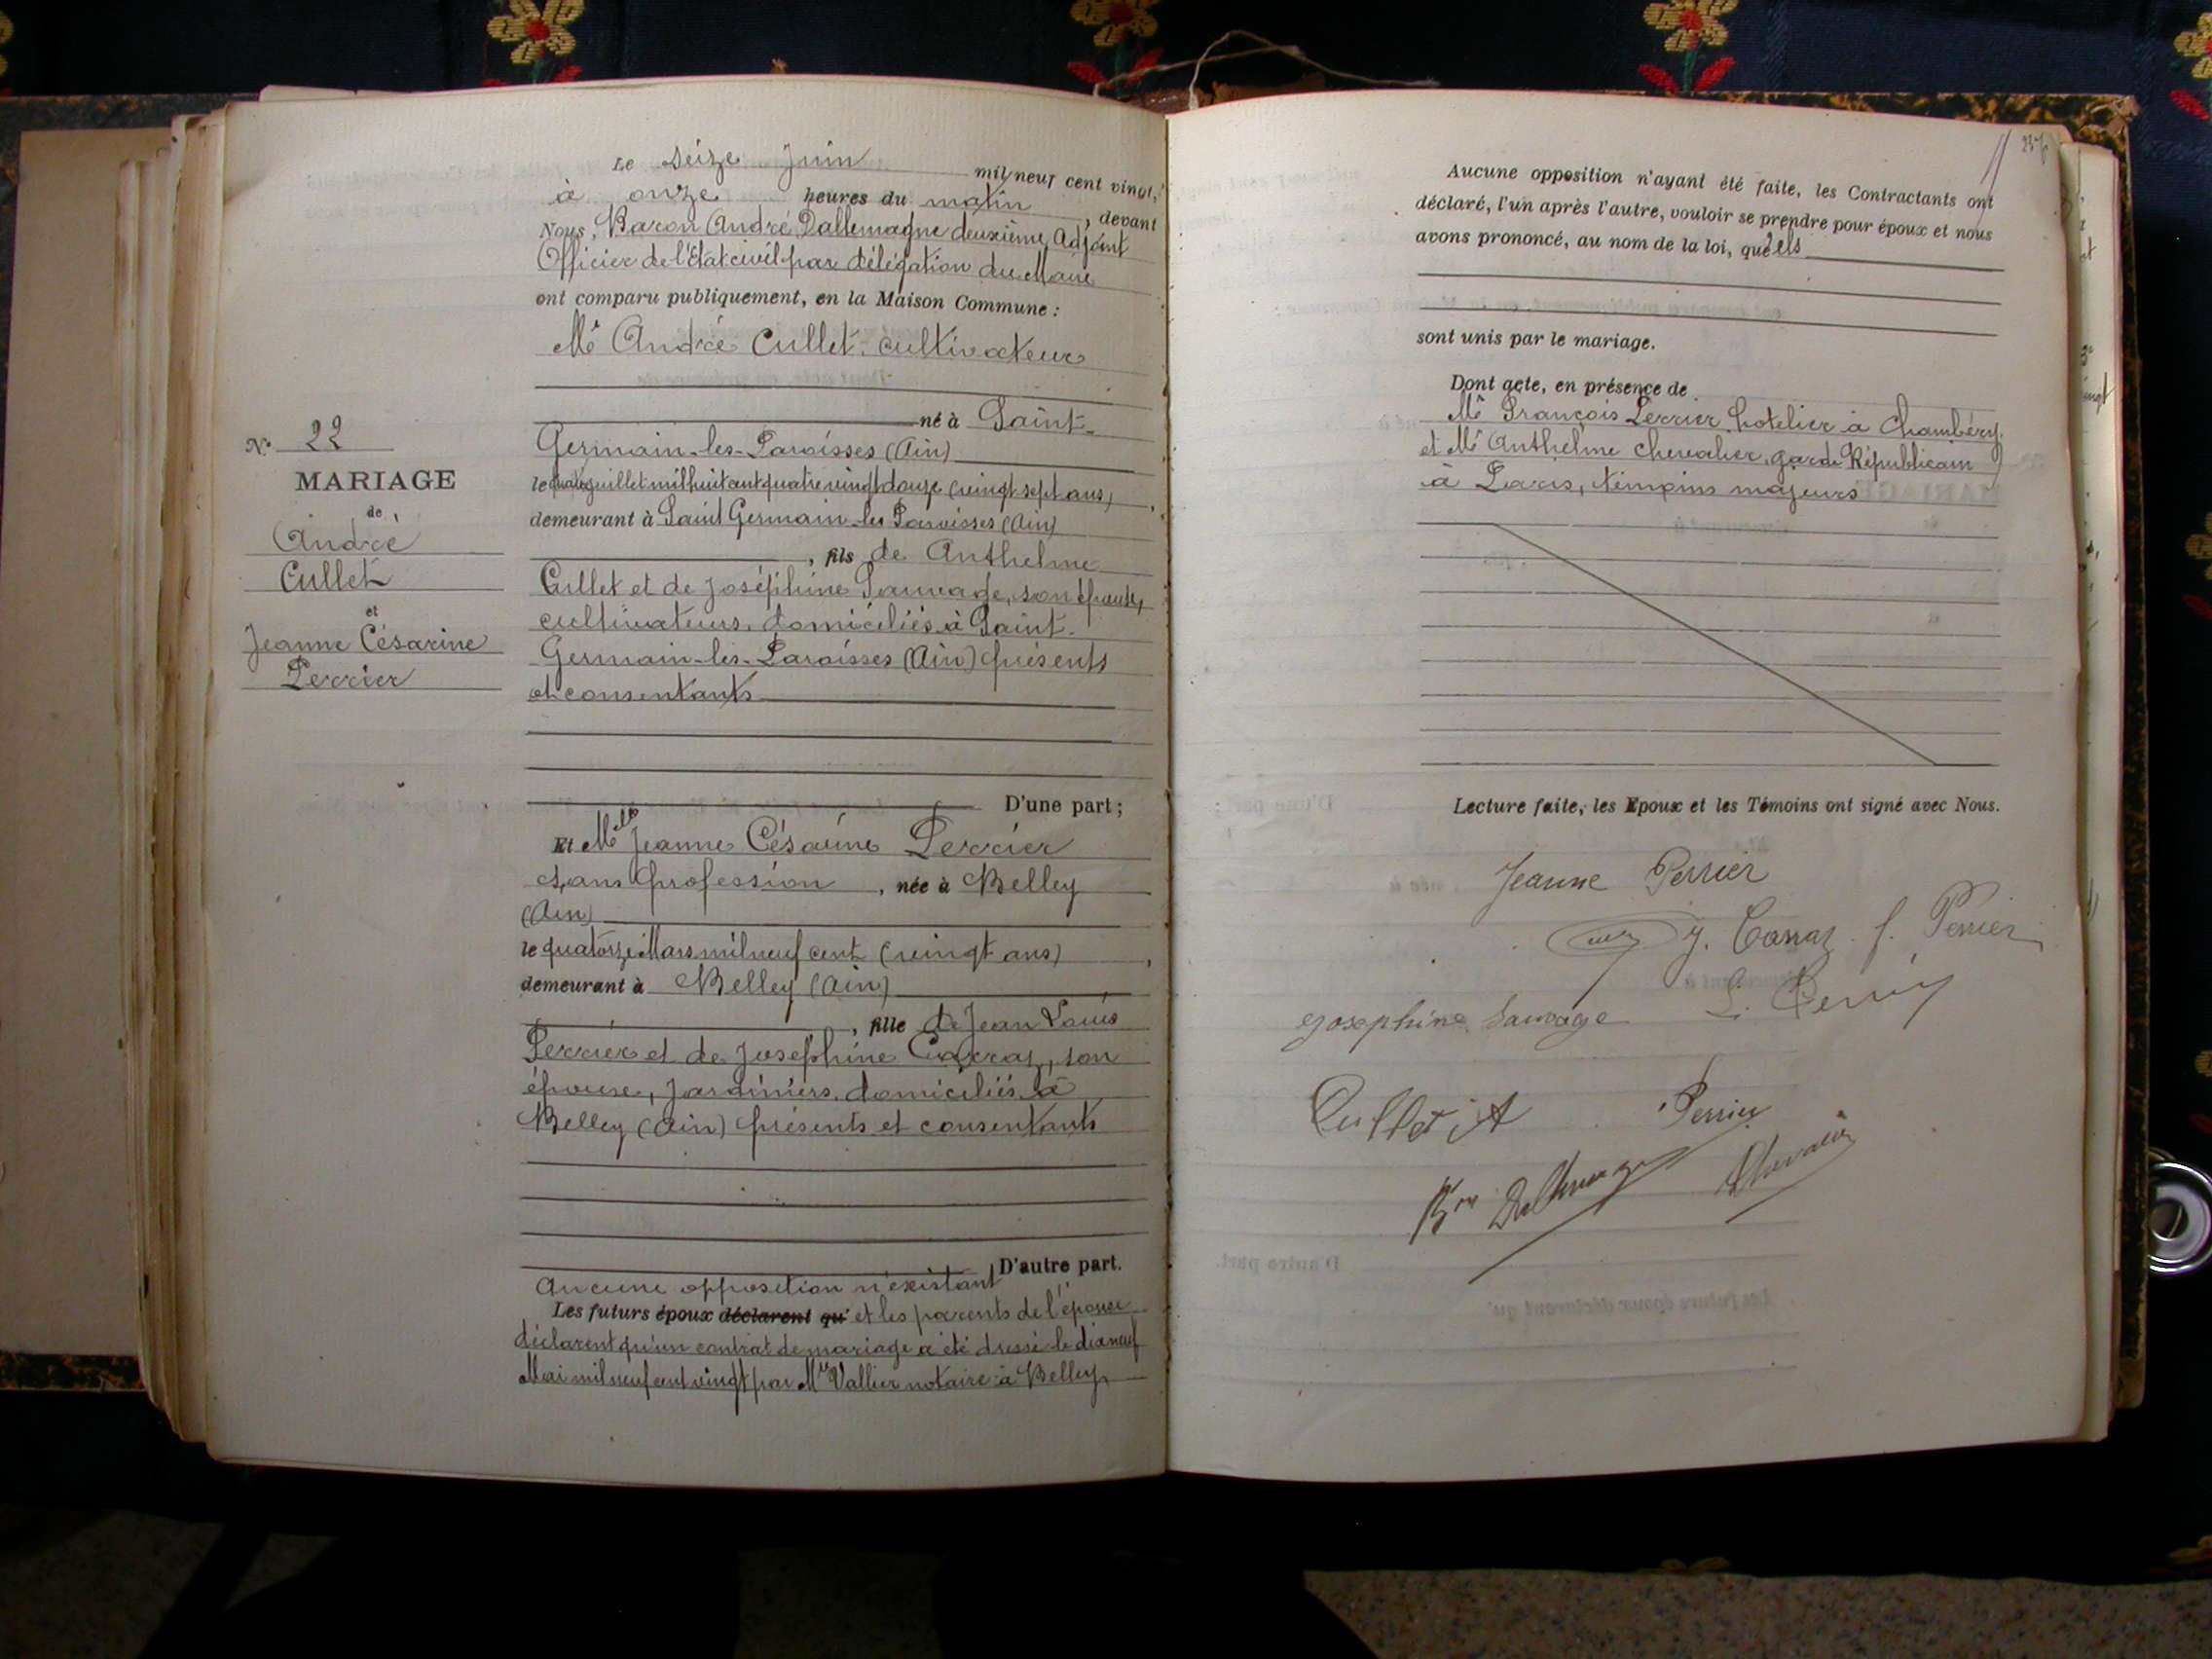 Le seize Juin mil neuf cent vingt,
à onze heures du matin, devant
Nous, Baron André Dallemagne deuxième Adjoint
Officier de l'État civil par délégation du Maire
ont comparu publiquement, en la Maison Commune :
Mr André Cullet, cultivateur
né à Saint-
Germain-les-Paroisses (Ain)
le juillet mil huit cent quatre vingt douze (vingt sept ans),
demeurant à Saint Germain-les Paroisses (Ain)
, fils de Anthelme
Cullet et de Joséphine Sauvage, son épouse,
cultivateurs, domiciliés à Saint-
Germain-les-Paroisses (Ain) présents
et consentants
D'une part ;
Et Mlle Jeanne Césarine Perrier
sans profession, née à Belley
(Ain)
le quatorze Mars mil neuf cent (vingt ans),
demeurant à Belley (Ain)
, fille de Jean Louis
Perrier et de Joséphine Carraz, son
épouse, jardiniers, domiciliés à
Belley (Ain) présents et consentants
D'autre part.
Aucune opposition n'existant
Les futurs époux déclarent qu' et les parents de l'épouse
déclarent qu'un contrat de mariage a été dressé le dix neuf
Mai mil neuf cent vingt par Me Vallier notaire à Belley
No 22
MARIAGE
de
André
Cullet
et
Jeanne Césarine
Perrier
237
Aucune opposition n'ayant été faite, les Contractants ont
déclaré, l'un après l'autre, vouloir se prendre pour époux et nous
avons prononcé, au nom de la loi, qu'ils
sont unis par le mariage.
Dont acte, en présence de
Mr François Perrier, hotelier à Chambéry,
et Mr Anthelme Chevalier, garde Républicain
à Paris, témoins majeurs
Lecture faite, les Epoux et les Témoins ont signé avec Nous.
Jeanne Perrier
J. Carraz f. Perrier
Josephine Sauvage L. Perrier
Cullet A Perrier
Bon Dallemagne Chevalier